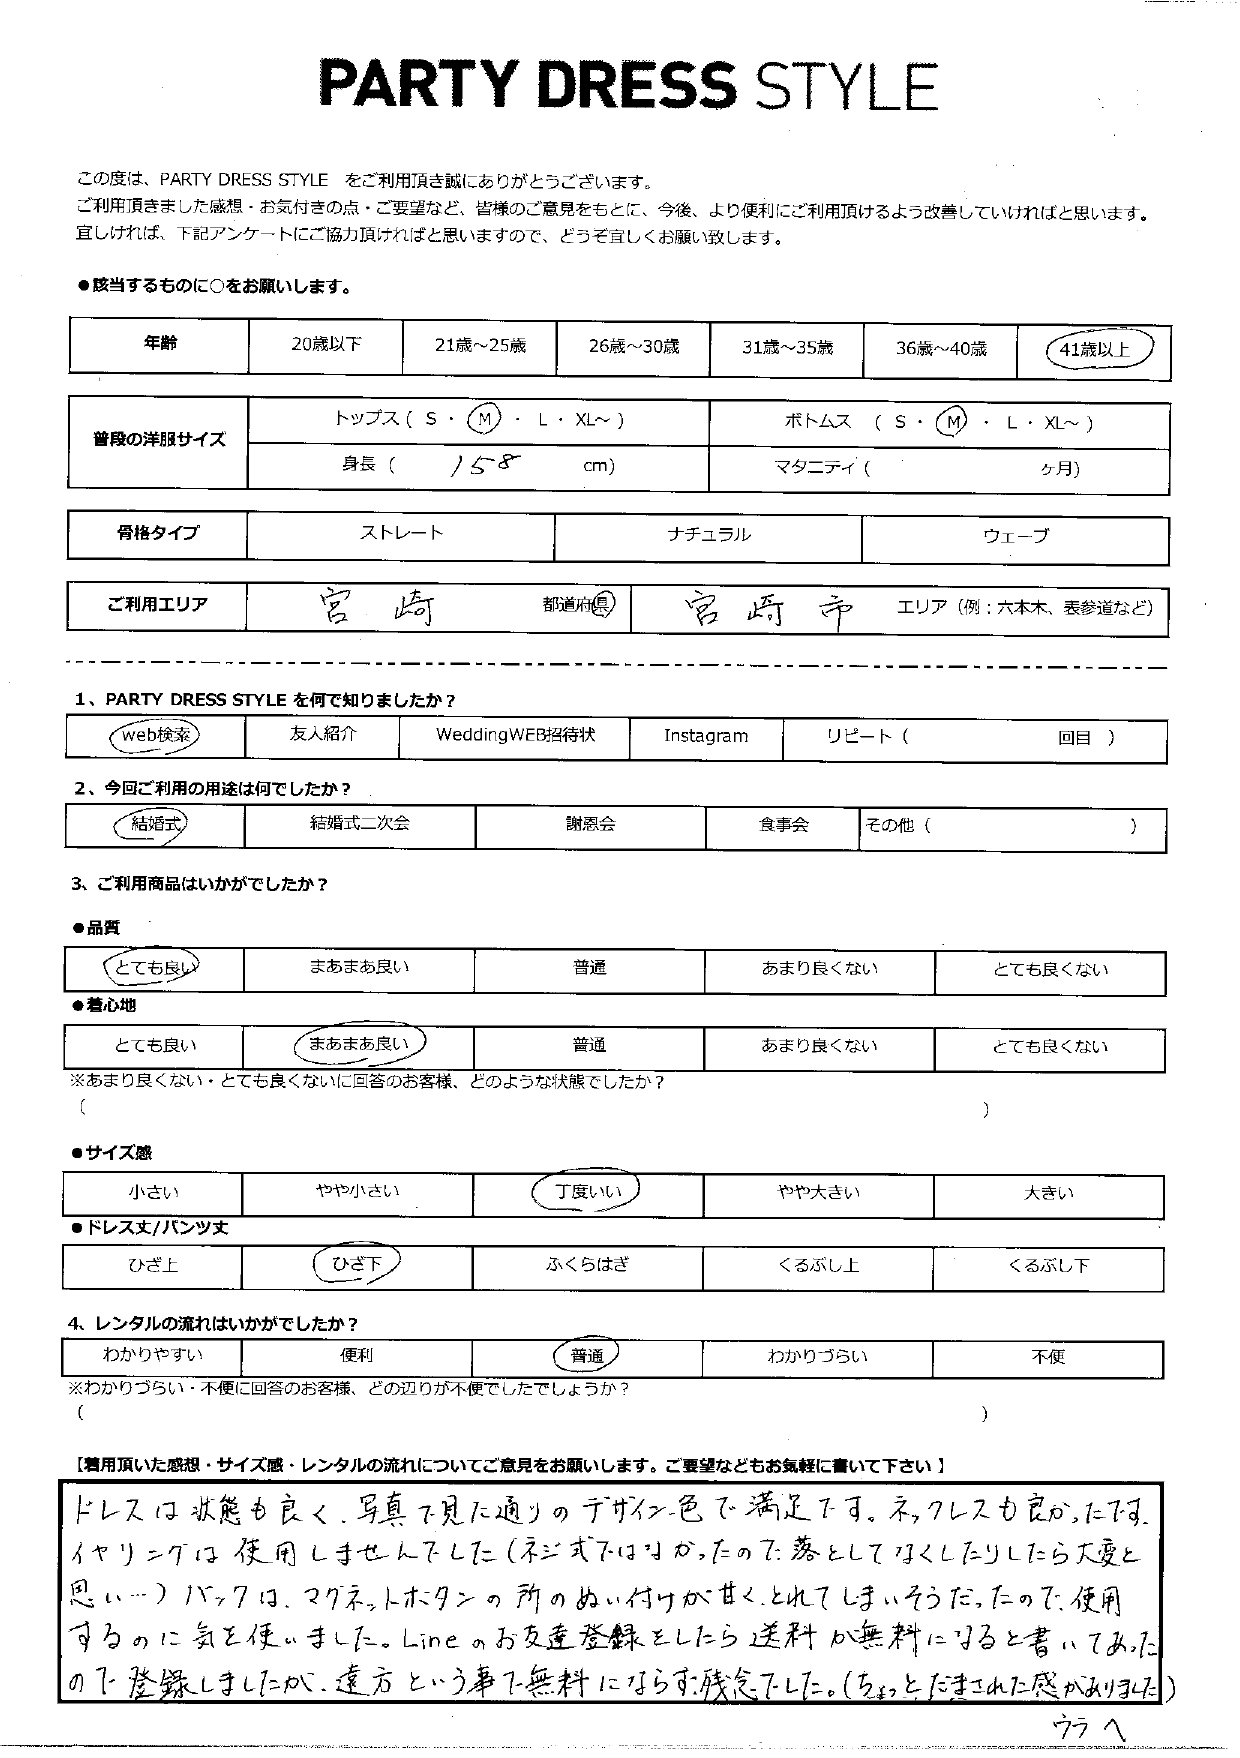 PARTY DRESS STYLE
この度は、PARTY DRESS STYLE をご利用頂き誠にありがとうございます。
ご利用頂きました感想・お気付きの点・ご要望など、皆様のご意見をもとに、今後、より便利にご利用頂けるよう改善していければと思います。
宜しければ、下記アンケートにご協力頂ければと思いますので、どうぞ宜しくお願い致します。
●該当するものに○をお願いします。
年齢 20歳以下 21歳～25歳 26歳～30歳 31歳～35歳 36歳～40歳 41歳以上
普段の洋服サイズ トップス ( S ・ M ・ L ・ XL～ ) ボトムス ( S ・ M ・ L ・ XL～ )
身長 ( 158 cm) マタニティ ( ヶ月)
骨格タイプ ストレート ナチュラル ウェーブ
ご利用エリア 宮崎 都道府県 宮崎市 エリア（例：六本木、表参道など）
1、PARTY DRESS STYLE を何で知りましたか？
web検索 友人紹介 WeddingWEB招待状 Instagram リピート ( 回目 )
2、今回ご利用の用途は何でしたか？
結婚式 結婚式二次会 謝恩会 食事会 その他 ( )
3、ご利用商品はいかがでしたか？
●品質
とても良い まあまあ良い 普通 あまり良くない とても良くない
●着心地
とても良い まあまあ良い 普通 あまり良くない とても良くない
※あまり良くない・とても良くないに回答のお客様、どのような状態でしたか？
( )
●サイズ感
小さい やや小さい 丁度いい やや大きい 大きい
●ドレス丈/パンツ丈
ひざ上 ひざ下 ふくらはぎ くるぶし上 くるぶし下
4、レンタルの流れはいかがでしたか？
わかりやすい 便利 普通 わかりづらい 不便
※わかりづらい・不便に回答のお客様、どの辺りが不便でしたでしょうか？
( )
【着用頂いた感想・サイズ感・レンタルの流れについてご意見をお願いします。ご要望などもお気軽に書いて下さい】
ドレスは状態も良く、写真で見た通りのデザイン、色で満足です。ネックレスも良かったです。
イヤリングは使用しませんでした（ネジ式ではなかったので、落としてなくしたりしたら大変と
思い…）バックは、マグネットホ゛タンの所のぬい付けが甘く、とれてしまいそうだったので、使用
するのに気を使いました。Lineのお友達登録をしたら送料が無料になると書いてあった
ので登録しましたが、遠方という事で無料にならず、残念でした。（ちょっとだまされた感がありました）
ウラへ